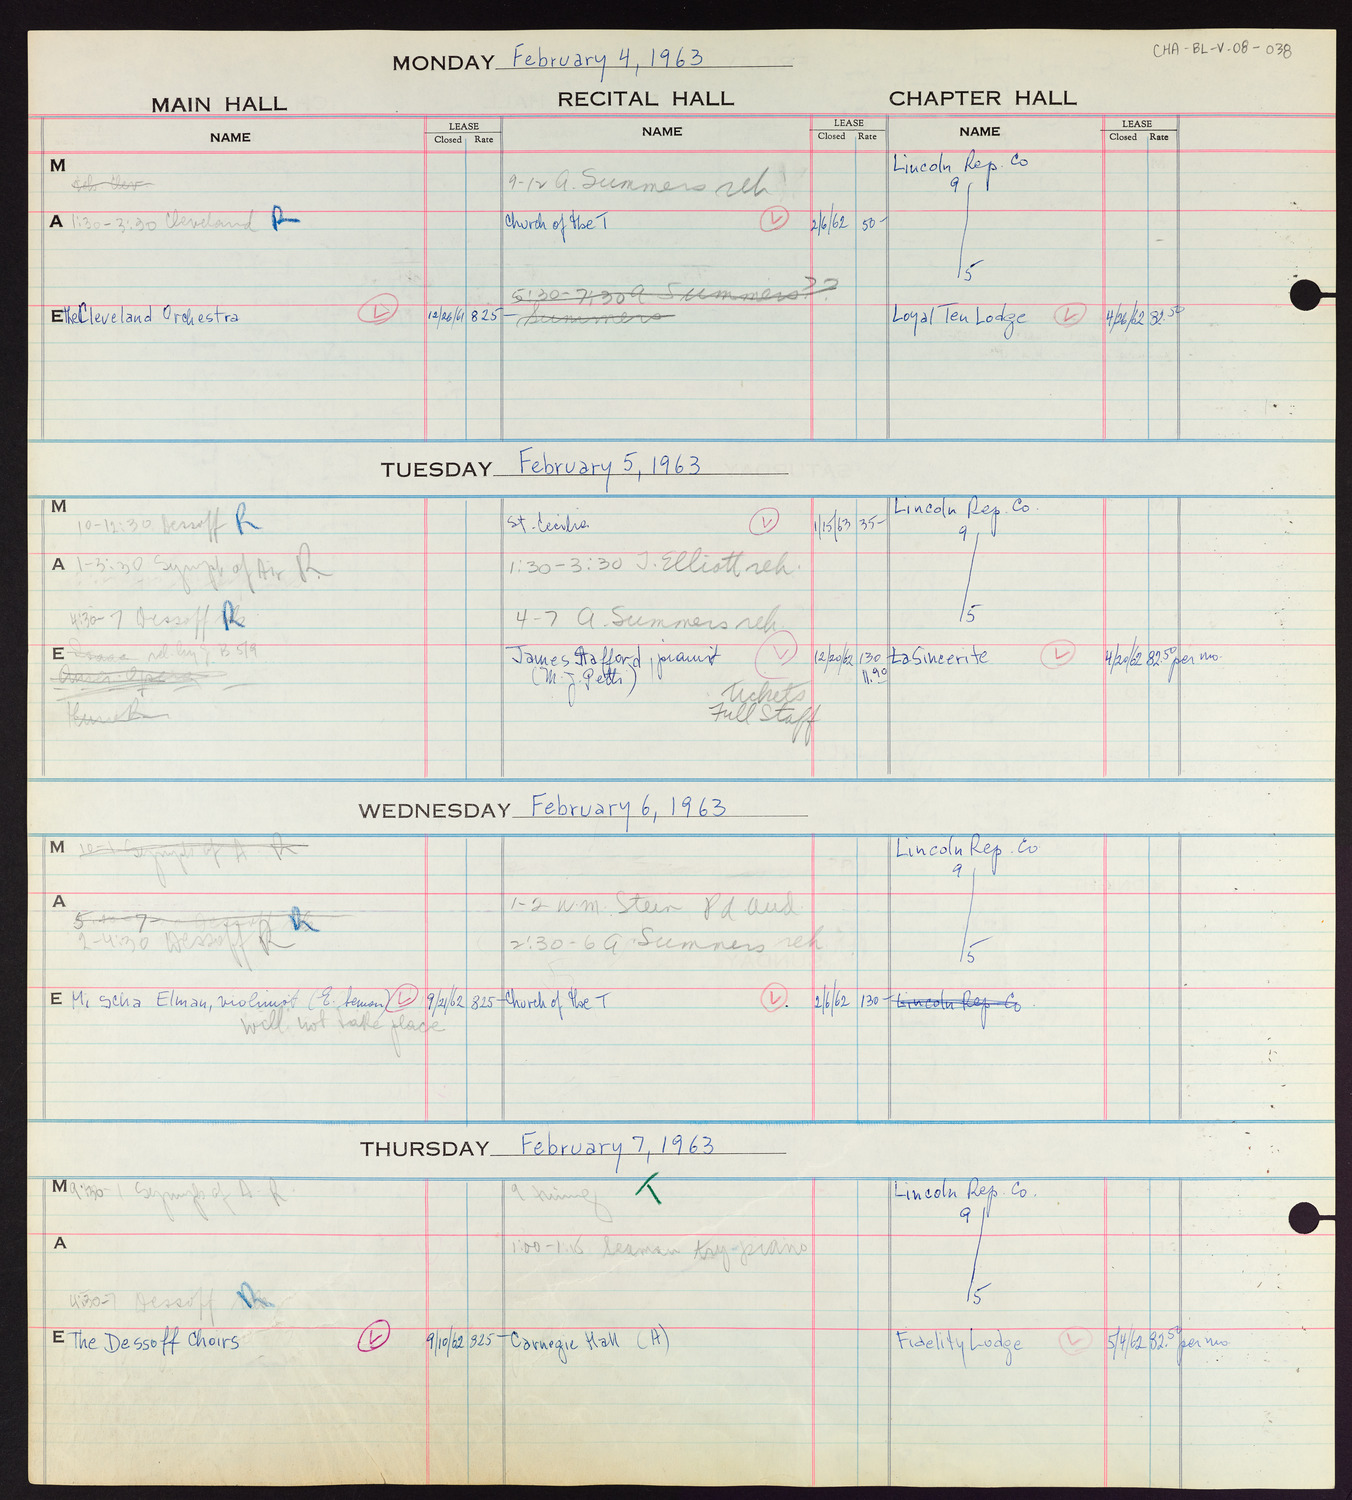 CHA-BL-V-08-038
MONDAY February 4, 1963
MAIN HALL RECITAL HALL CHAPTER HALL
NAME LEASE Closed Rate NAME LEASE Closed Rate NAME LEASE Closed Rate
M
9-12 A. Summers reh
Lincoln Rep. Co
9
5
A 1:30-3:30 Cleveland R
Church of the T 2/6/62 50-
5:30-7:30 A Summers??
E The Cleveland Orchestra 12/26/61 825-
Summers
Loyal Ten Lodge 4/26/62 82.50
TUESDAY February 5, 1963
M
10-12:30 Dessoff R
St. Cecilia 1/15/63 35-
Lincoln Rep. Co.
9
5
A 1-3:30 Symph of Air R
1:30-3:30 J. Elliott reh.
4:30-7 Dessoff R
4-7 A. Summers reh.
E
James Stafford, pianist 12/20/62 130
(M. J. Petti) 11.90
Tickets
Full Staff
LaSincerite 4/20/62 82.50 per mo.
Amer. Opera
WEDNESDAY February 6, 1963
M 10-1 Symph of A R
Lincoln Rep. Co
9
5
A
5 7 Dessoff R
2-4:30 Dessoff R
1-2 Wm. Stein Pd aud
2:30-6 A. Summers reh
E Mischa Elman, violinist 9/21/62 825-
will not take place
Church of the T 2/6/62 130-
Lincoln Rep. Co
THURSDAY February 7, 1963
M 9:30-1 Symph of A R
9 T
Lincoln Rep. Co.
9
5
A
1:00-1:15 Seaman try-piano
4:30-7 Dessoff R
E The Dessoff Choirs 9/10/62 825-
Carnegie Hall (H)
Fidelity Lodge 5/4/62 82.50 per mo.